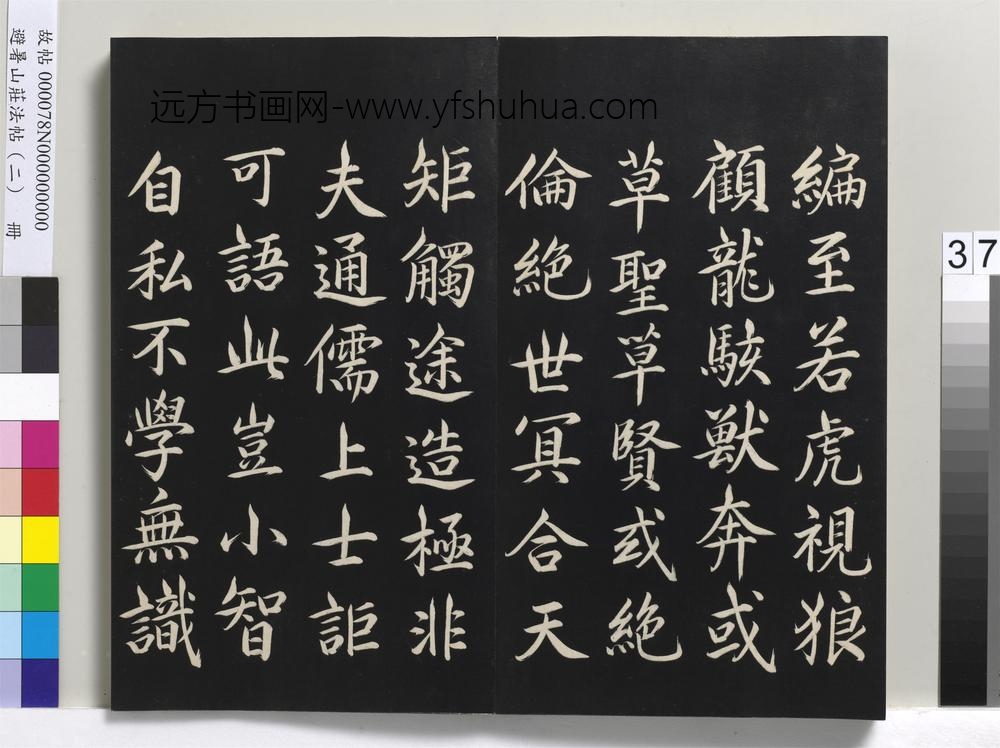 編至若虎視狼
顧龍駭獸奔或
草聖草賢或絕
倫絕世冥合天
矩觸途造極非
夫通儒上士詎
可語此豈小智
自私不學無識
远方书画网-www.yfshuhua.com
故帖 000078N000000000
避暑山莊法帖(二) 冊
37